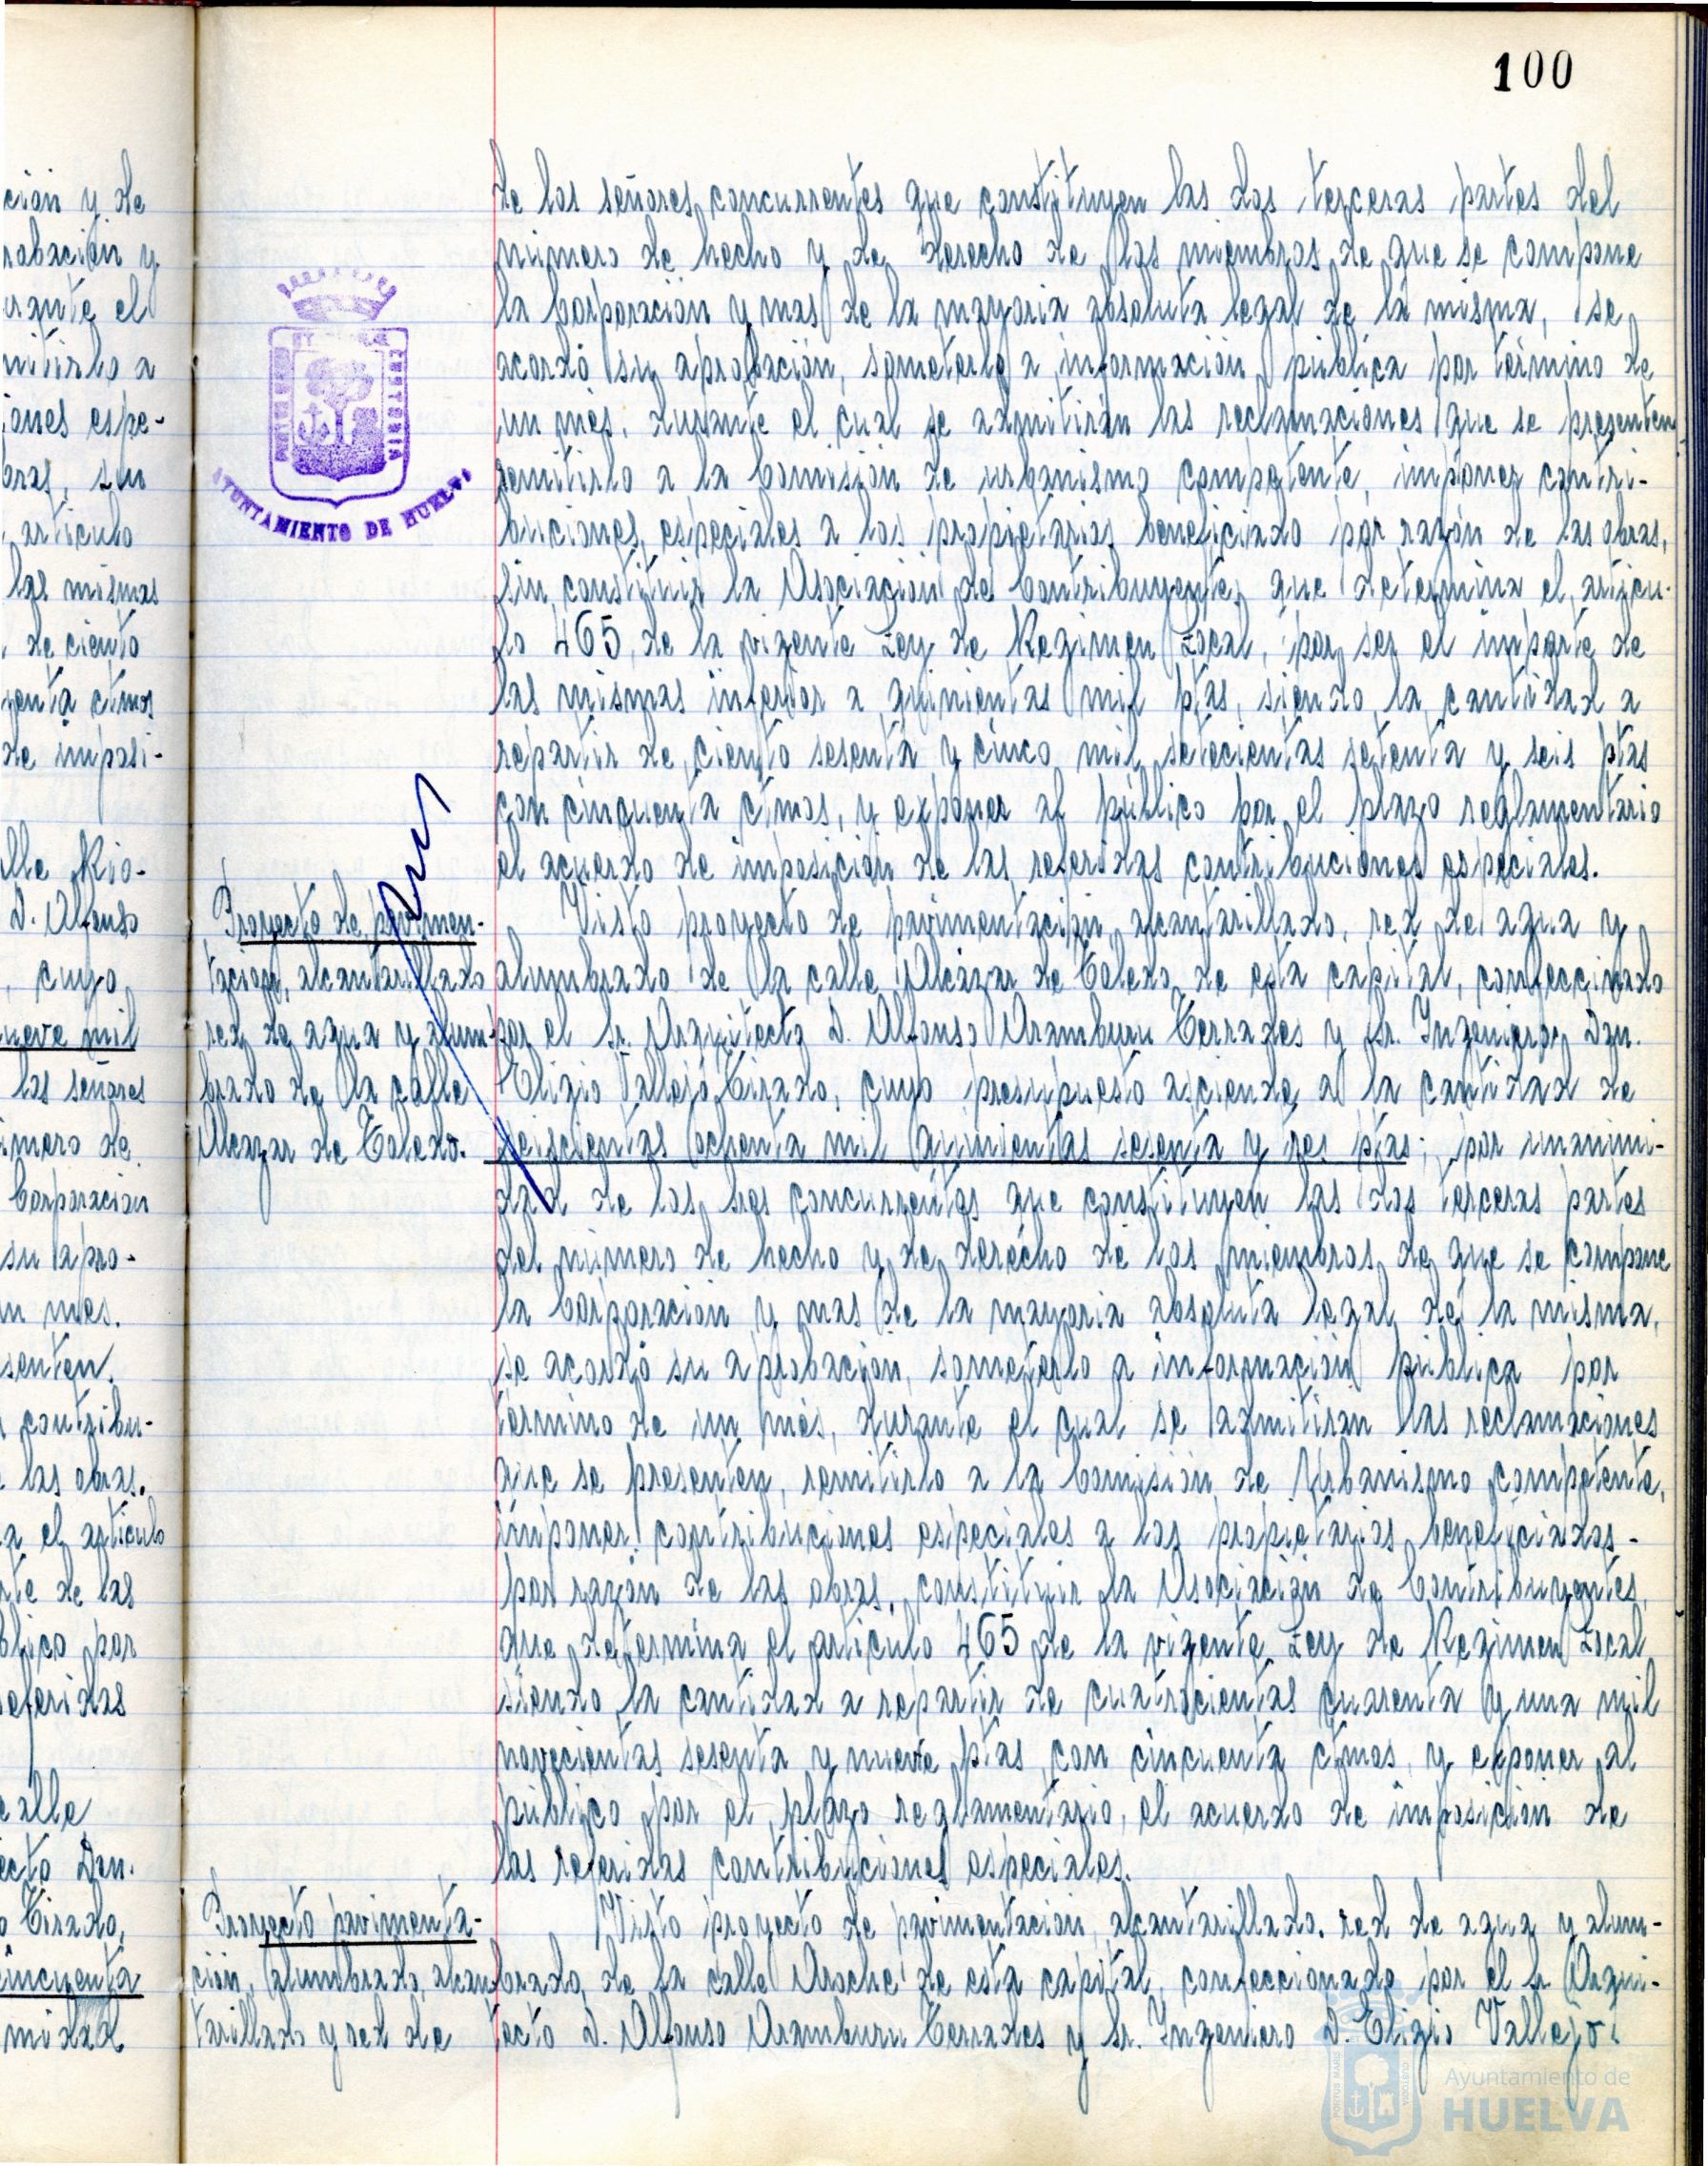 100
de los señores concurrentes que constituyen las dos terceras partes del
número de hecho y de derecho de los miembros de que se compone
la Corporación y mas de la mayoria absoluta legal de la misma, se
acordó su aprobación, someterlo a información pública por término de
un més, durante el cual se admitirán las reclamaciones que se presenten,
remitirlo a la Comisión de urbanismo competente, imponer contri-
buciones especiales a los propietarios beneficiado por razón de las obras,
sin constituir la Asociación de Contribuyentes que determina el artícu-
lo 465, de la vigente Ley de Regimen Local, por ser el importe de
las mismas inferior a quinientas mil ptas, siendo la cantidad a
repartir de ciento sesenta y cinco mil setecientas setenta y seis ptas
con cincuenta ctmos, y exponer al público por el plazo reglamentario
el acuerdo de imposición de las referidas contribuciones especiales.
Proyecto de pavimen-
tación, alcantarillado
red de agua y alum-
brado de la calle
Alcazar de Toledo.
Visto proyecto de pavimentación, alcantarillado, red de agua y
alumbrado de la calle Alcázar de Toledo de esta capital, confeccionado
por el Sr. Arquitecto D. Alfonso Aramburu Terrades y Sr. Ingeniero, Don.
Eligio Vallejo Tirado, cuyo presupuesto asciende a la cantidad de
seiscientas ochenta mil quinientas sesenta y tres ptas; por unanimi-
dad de los sres concurrentes que constituyen las dos terceras partes
del número de hecho y de derecho de los miembros de que se compone
la Corporación y mas de la mayoria absoluta legal de la misma,
se acordó su aprobación, someterlo a información pública por
termino de un més, durante el cual se admitiran las reclamaciones
que se presenten, remitirlo a la Comisión de Urbanismo competente,
imponer contribuciones especiales a los propietarios beneficiados-
por razón de las obras, constituir la Asociación de Contribuyentes,
que determina el articulo 465 de la vigente Ley de Regimen Local
siendo la cantidad a repartir de cuatrocientas cuarenta y una mil
novecientas sesenta y nueve ptas con cincuenta ctmos y exponer al
público por el plazo reglamentario, el acuerdo de imposición de
las referidas contribuciones especiales.
Proyecto pavimenta-
ción, alumbrado, alcan-
tarillado y red de
Visto proyecto de pavimentación, alcantarillado, red de agua y alum-
brado, de la calle Aroche de esta capital, confeccionado por el Sr Arqui-
tecto D. Alfonso Aramburu Terrades y Sr. Ingeniero D. Eligio Vallejo
AYUNTAMIENTO DE HUELVA
ción y de
robación y
urante el
mitirlo a
iones espe-
bras, sin
articulo
las mismas
de ciento
uenta ctmos
de imposi-
alle Rio-
D. Alfonso
, cuyo
nueve mil
los señores
úmero de
Corporación
su apro-
un mes.
senten,
contribu-
las obras.
a el articulo
rte de las
blico por
referidas
calle
ecto Don.
o Tirado,
cincuenta
midad
Ayuntamiento de
HUELVA